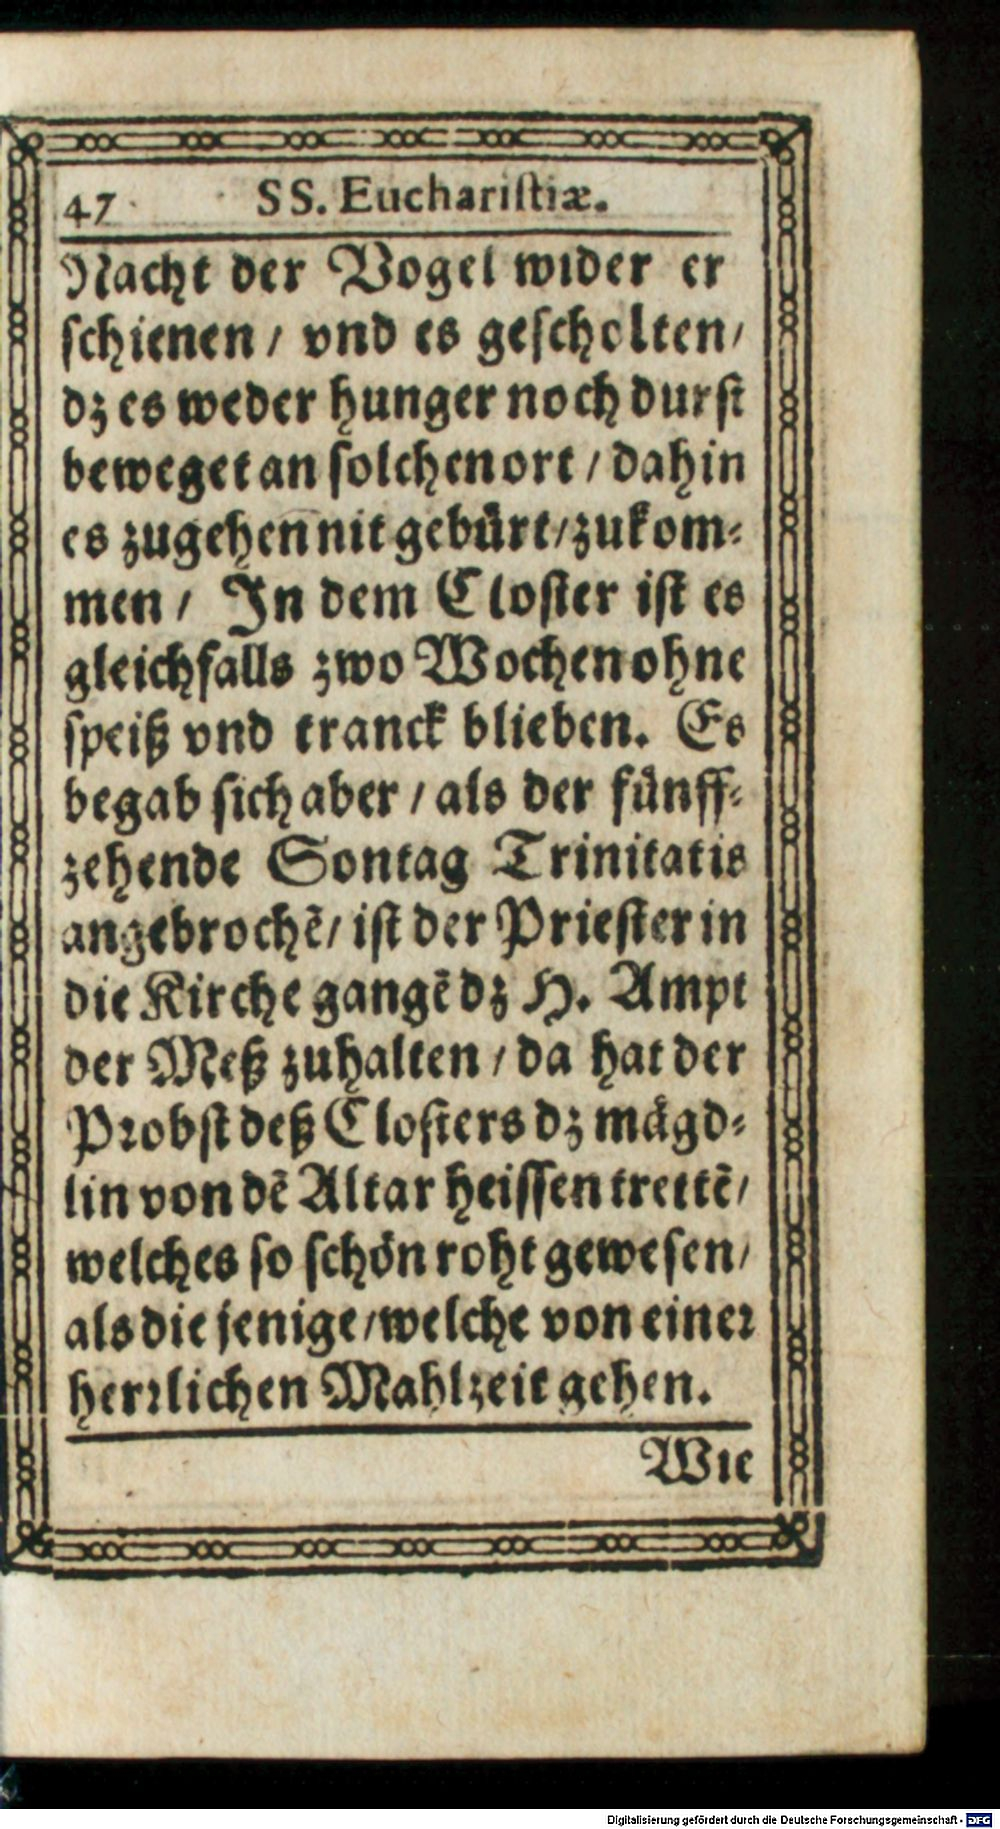 47 SS. Euchariſtiæ.
Nacht der Vogel wider er
ſchienen / vnd es geſcholten /
dz es weder hunger noch durſt
beweget an ſolchen ort / dahin
es zugehen nit gebürt / zukom-
men / In dem Cloſter iſt es
gleichfalls zwo Wochen ohne
ſpeiß vnd tranck blieben. Es
begab ſich aber / als der fünff-
zehende Sontag Trinitatis
angebrochē / iſt der Prieſter in
die Kirche gangē dz H. Ampt
der Meß zuhalten / da hat der
Probſt deß Cloſters dz mägd-
lin von dē Altar heiſſen trettē /
welches ſo ſchön roht geweſen /
als die jenige / welche von eineꝛ
herꝛlichen Mahlzeit gehen.
Wie
Digitalisierung gefördert durch die Deutsche Forschungsgemeinschaft - DFG